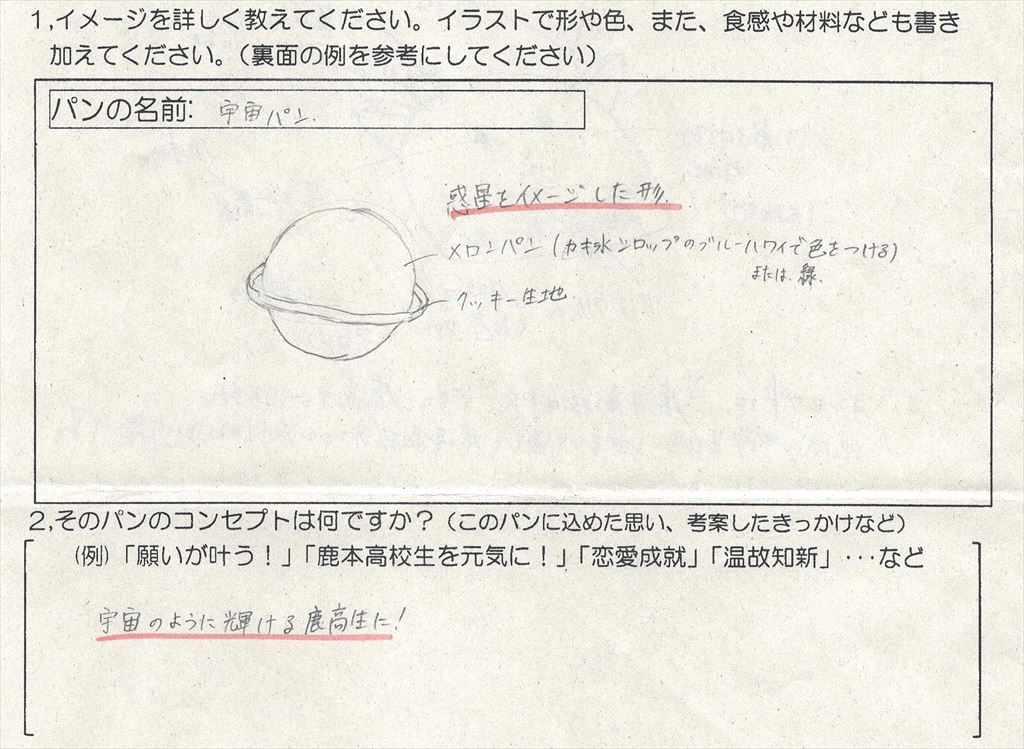 1,イメージを詳しく教えてください。イラストで形や色、また、食感や材料なども書き
加えてください。（裏面の例を参考にしてください）
パンの名前: 宇宙パン.
惑星をイメージした形.
メロンパン (カキ氷シロップのブルーハワイで色をつける)
または、緑.
クッキー生地
2,そのパンのコンセプトは何ですか？（このパンに込めた思い、考案したきっかけなど）
(例)「願いが叶う！」「鹿本高校生を元気に！」「恋愛成就」「温故知新」･･･など
宇宙のように輝ける鹿高生に!